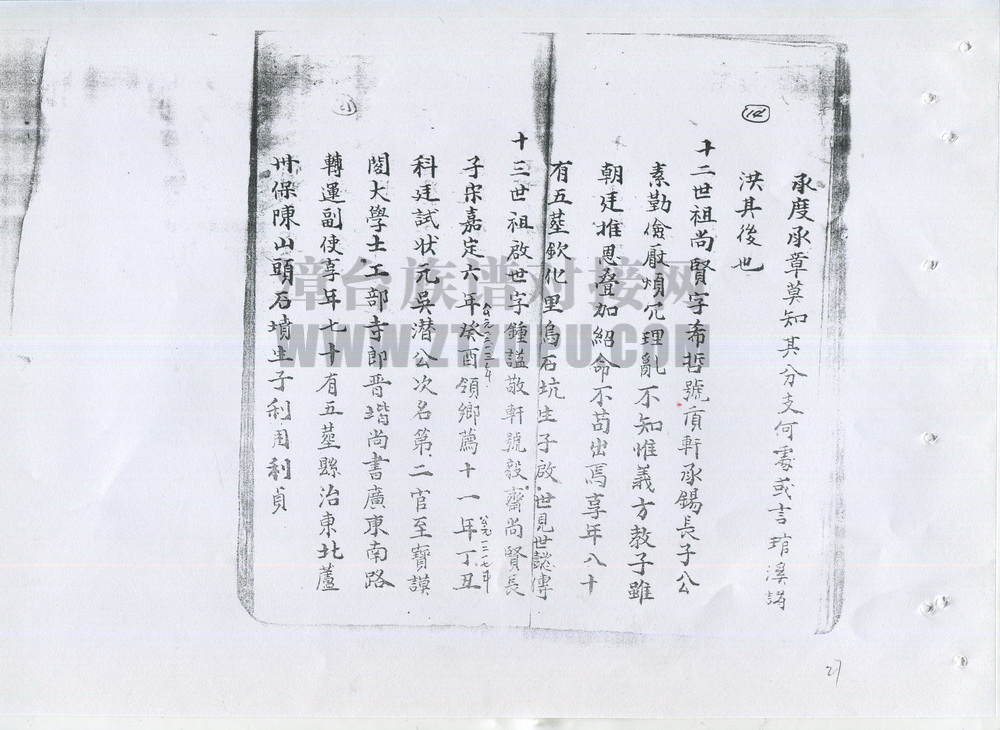 14
承度承章莫知其分支何處或言琯溪諸
洪其後也
十二世祖尚賢字希哲號頂軒承錫長子公
素勤儉厭煩冗理亂不知惟義方教子雖
朝廷推恩疊加紹命不苟出焉享年八十
有五塟欽化里烏石坑生子啟世見世懿傳
十三世祖啟世字鍾謚敬軒號毅齋尚賢長
子宋嘉定六年癸酉領鄉薦十一年丁丑
公元一二一三年
公元一二一七年
科廷試狀元吳潛公次名第二官至寶謨
閣大學士工部寺郎晋堦尚書廣東南路
轉運副使享年七十有五塟縣治東北蘆
卅保陳山頭石墳生子利用利貞
章台族谱对接网
27